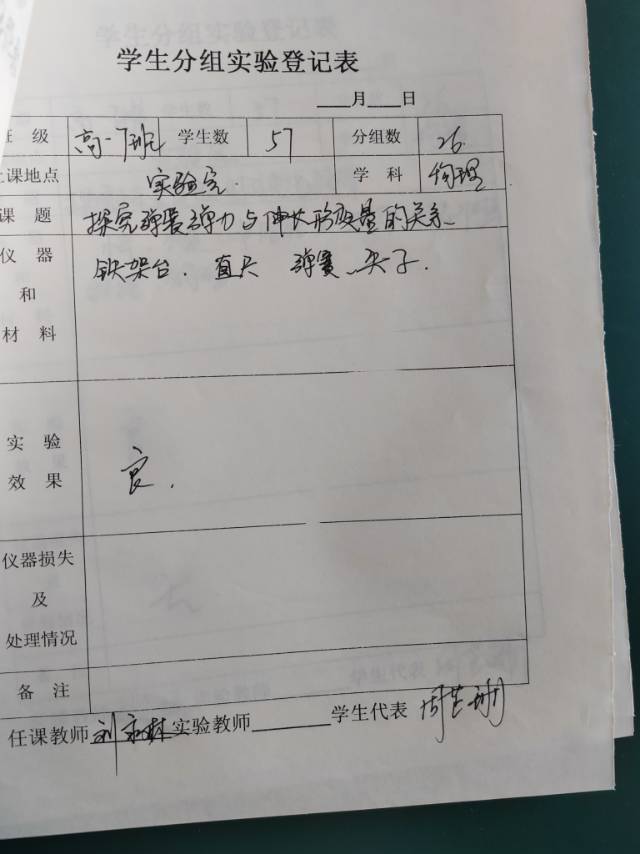 学生分组实验登记表
___月___日
班 级 高一7班 学生数 57 分组数 26
上课地点 实验室. 学 科 物理
课 题 探究弹簧弹力与伸长形变量的关系
仪 器 铁架台. 直尺 弹簧 夹子.
和
材 料
实 验
效 果 良.
仪器损失
及
处理情况
备 注
任课教师 刘 实验教师______学生代表 周芷珊